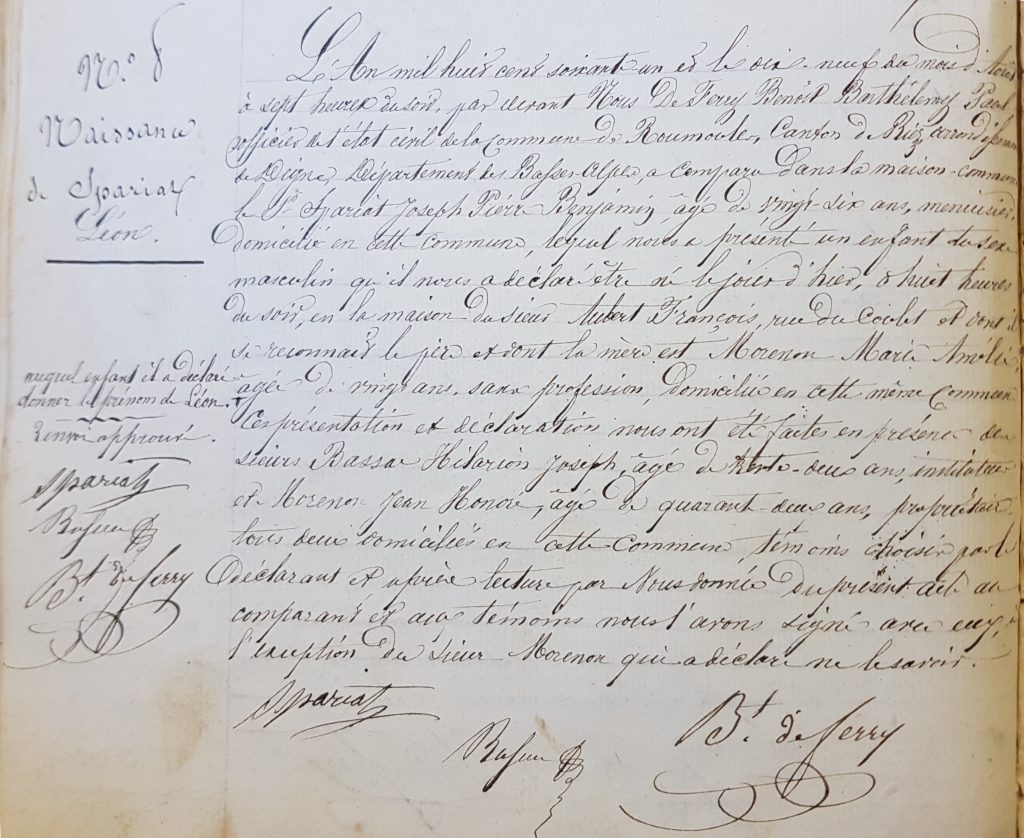 N.° 8
Naissance
de Spariat
Léon.
L'An mil huit cent soixante un et le dix-neuf du mois d'
à sept heures du soir, par devant Nous De Ferry Benoît Barthélemy Paul
officier de l'état civil de la commune de Roumoules, Canton de Riez, arrondissement
de Digne, Département des Basses-Alpes, a comparu dans la maison-commune
le S.r Spariat Joseph Pierre Benjamin, âgé de vingt-six ans, menuisier,
domicilié en cette commune, lequel nous a présenté un enfant du sexe
masculin qu'il nous a déclaré être né le jour d'hier, à huit heures
du soir, en la maison du sieur Aubert François, rue du Coulet et dont il
se reconnait le père et dont la mère est Morenon Marie Amélie,
âgée de vingt ans, sans profession, domiciliée en cette même commune
auquel enfant il a déclaré
donner le prénom de Léon.
Renvoi approuvé.
Spariat
Bt de Ferry
Ces présentation et déclaration nous ont été faites en présence des
sieurs Bassac Hilarion Joseph, âgé de trente-deux ans, instituteur
et Morenon Jean Honoré, âgé de quarante-deux ans, propriétaire
tous deux domiciliés en cette commune témoins choisis par le
déclarant et après lecture par Nous donnée du présent acte au
comparant et aux témoins nous l'avons signé avec eux, à
l'exception du sieur Morenon qui a déclaré ne le savoir.
Spariat
Bt de Ferry